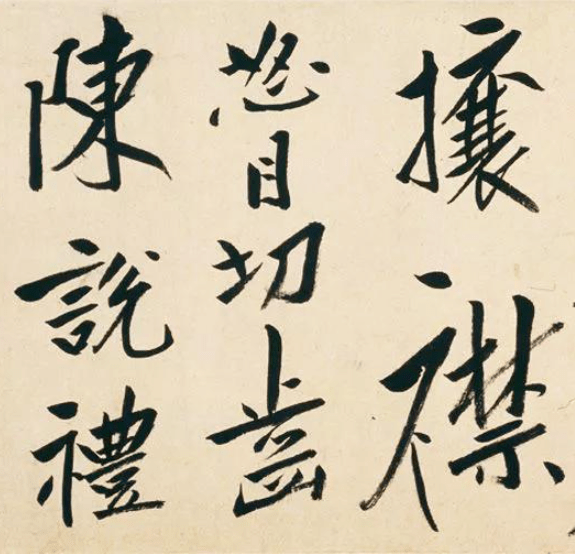 攘襟
怒目切齒
陳說禮